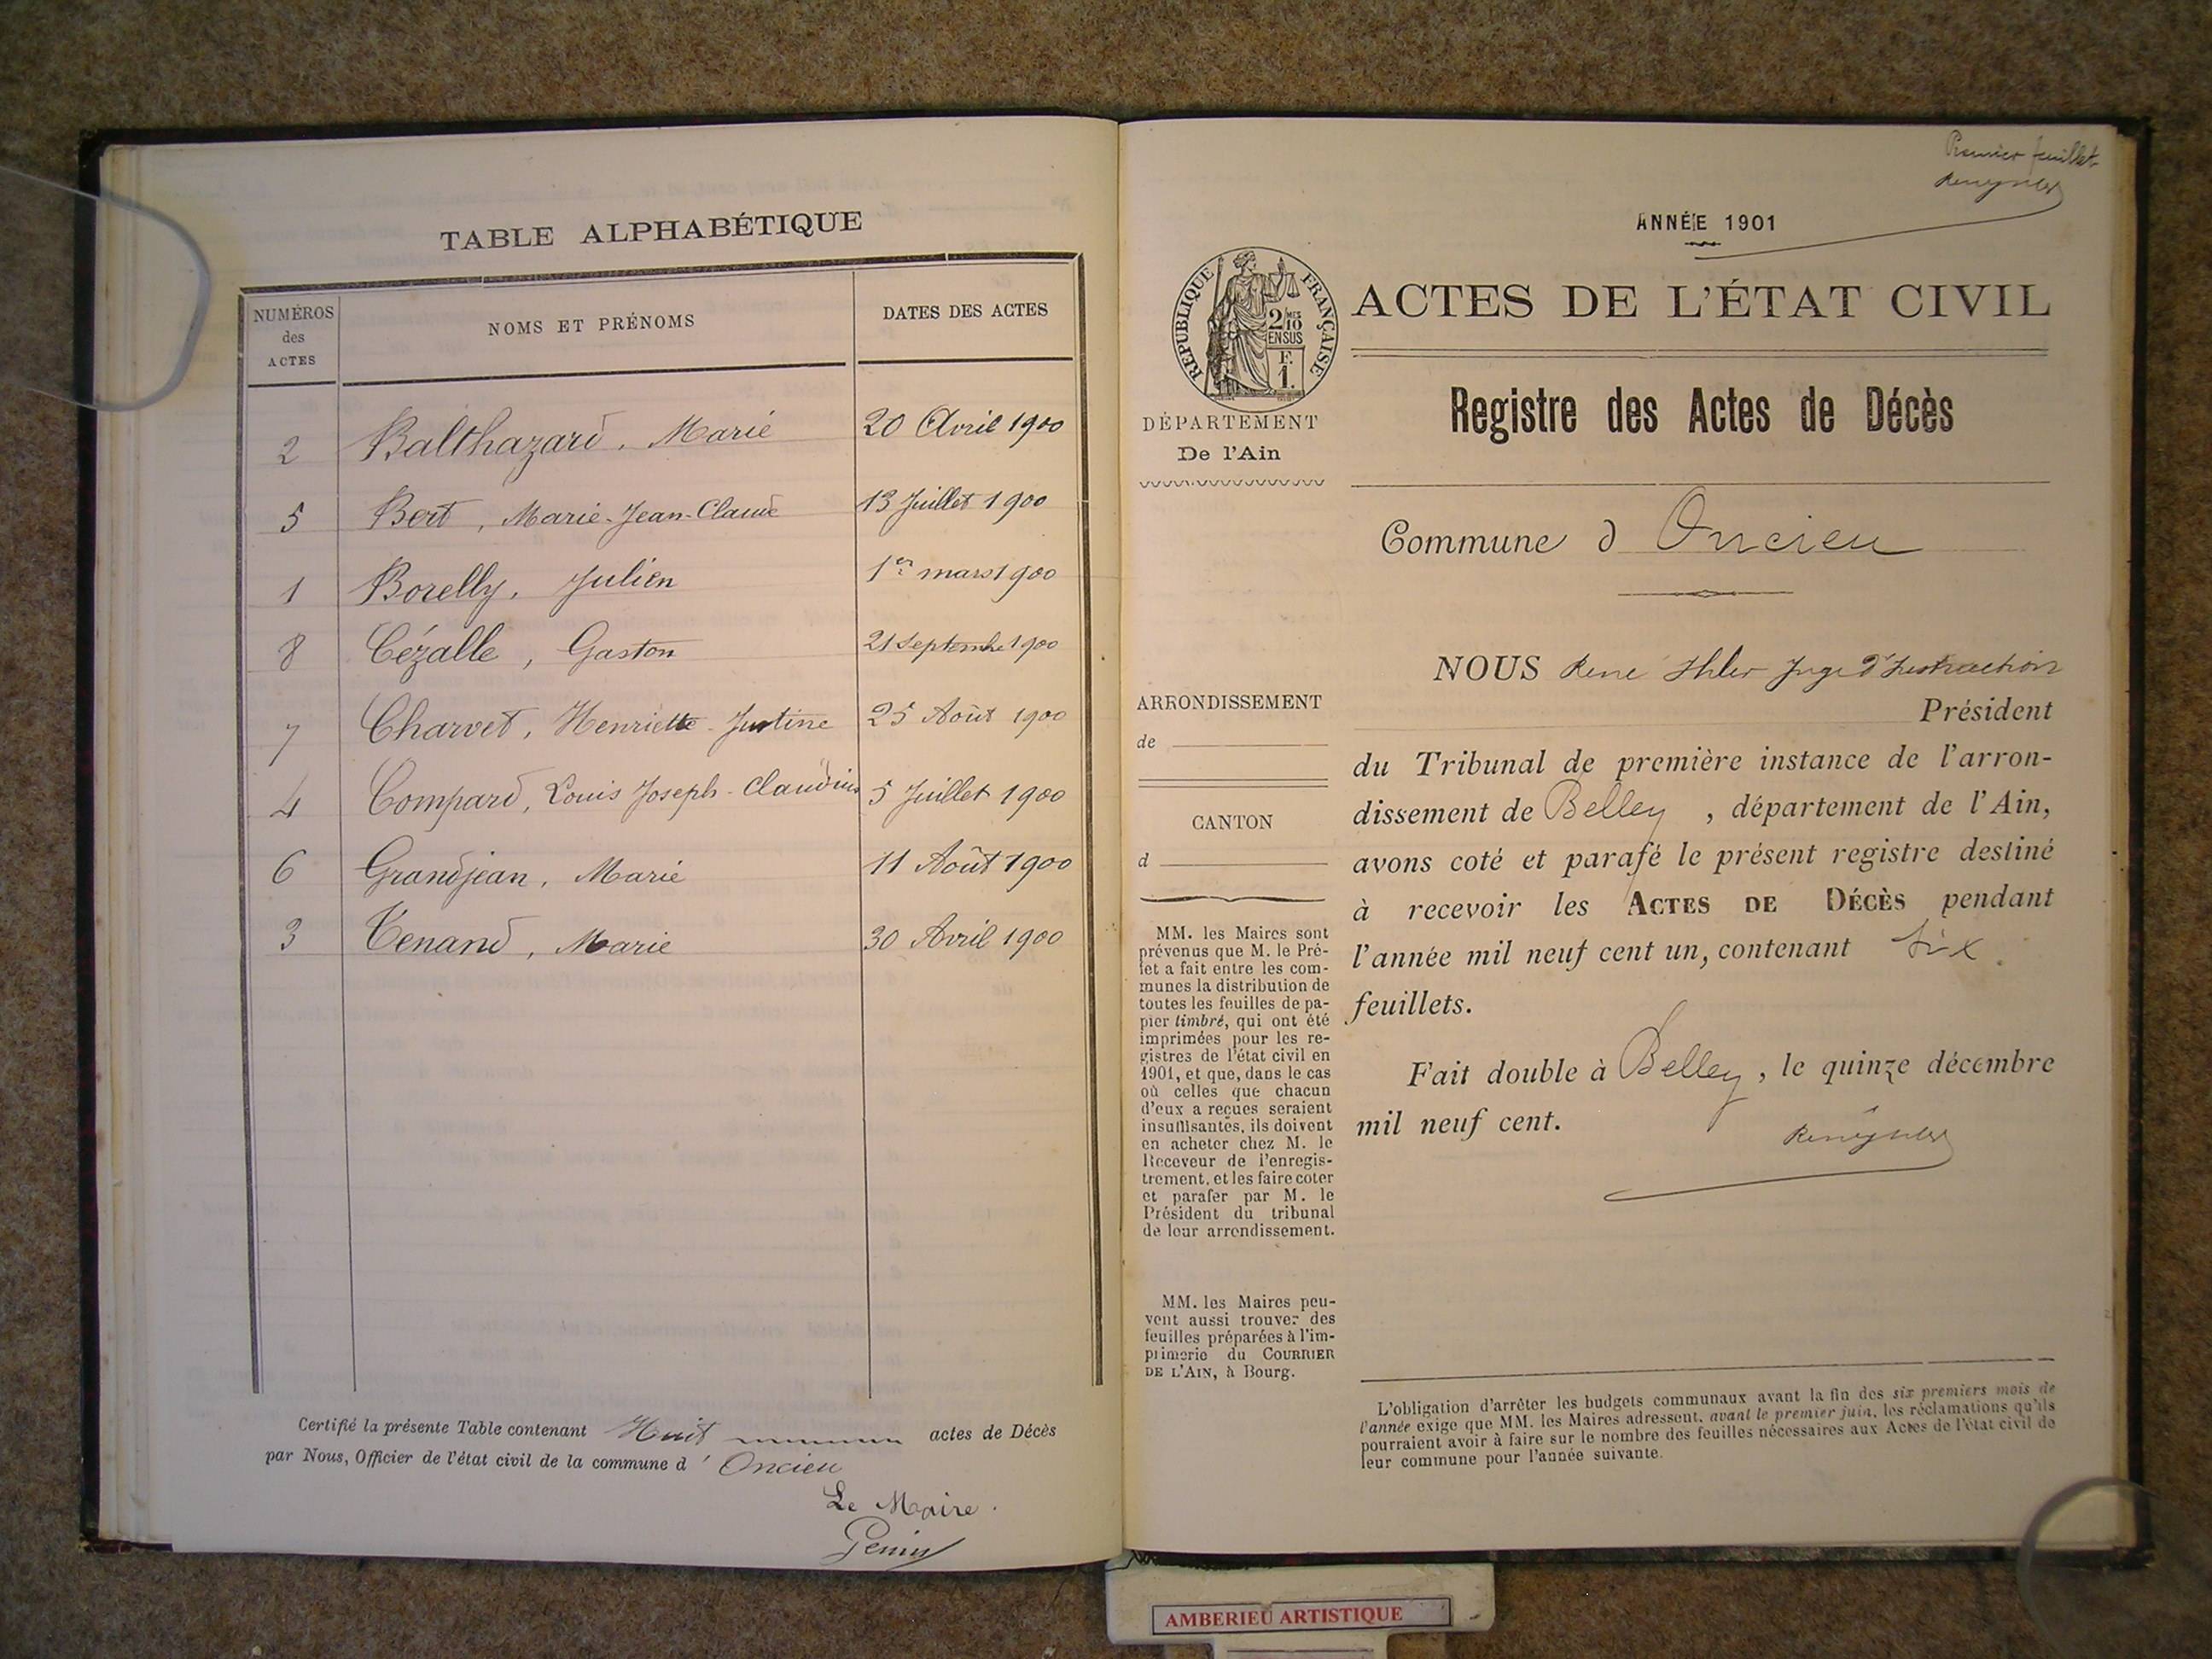 TABLE ALPHABÉTIQUE
NUMÉROS des ACTES
NOMS ET PRÉNOMS
DATES DES ACTES
2 Balthazard, Marie 20 Avril 1900
5 Bert, Marie-Jean-Claude 13 Juillet 1900
1 Borelly, Julien 1er mars 1900
8 Cézalle, Gaston 21 Septembre 1900
7 Charvet, Henriette-Justine 25 Août 1900
4 Compard, Louis Joseph-Claudius 5 Juillet 1900
6 Grandjean, Marie 11 Août 1900
3 Tenand, Marie 30 Avril 1900
Certifié la présente Table contenant Huit actes de Décès
par Nous, Officier de l'état civil de la commune d' Oncieu
Le Maire.
Premier feuillet
ANNÉE 1901
RÉPUBLIQUE FRANÇAISE
2/10 MES
EN SUS
F.
1.
ACTES DE L'ÉTAT CIVIL
DÉPARTEMENT
De l'Ain
Registre des Actes de Décès
Commune d Oncieu
ARRONDISSEMENT
de
CANTON
d
MM. les Maires sont
prévenus que M. le Pré-
fet a fait entre les com-
munes la distribution de
toutes les feuilles de pa-
pier timbré, qui ont été
imprimées pour les re-
gistres de l'état civil en
1901, et que, dans le cas
où celles que chacun
d'eux a reçues seraient
insuffisantes, ils doivent
en acheter chez M. le
Receveur de l'enregis-
trement, et les faire coter
et parafer par M. le
Président du tribunal
de leur arrondissement.
MM. les Maires peu-
vent aussi trouver des
feuilles préparées à l'im-
primerie du COURRIER
DE L'AIN, à Bourg.
NOUS René Juge d'Instruction
Président
du Tribunal de première instance de l'arron-
dissement de Belley, département de l'Ain,
avons coté et parafé le présent registre destiné
à recevoir les ACTES DE DÉCÈS pendant
l'année mil neuf cent un, contenant Six
feuillets.
Fait double à Belley, le quinze décembre
mil neuf cent.
L'obligation d'arrêter les budgets communaux avant la fin des six premiers mois de
l'année exige que MM. les Maires adressent, avant le premier juin, les réclamations qu'ils
pourraient avoir à faire sur le nombre des feuilles nécessaires aux Actes de l'état civil de
leur commune pour l'année suivante.
AMBERIEU ARTISTIQUE